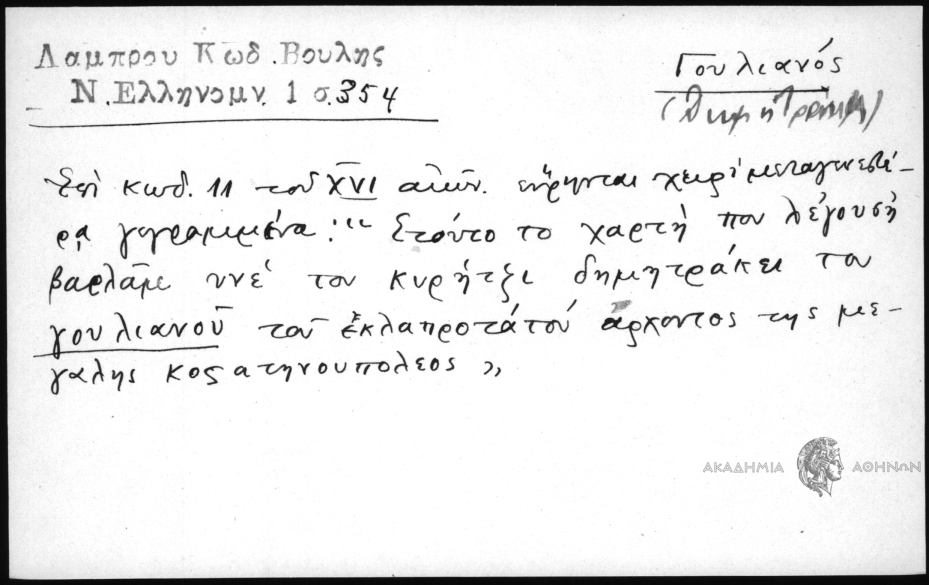 Λαμπρου Κωδ. Βουλης
Ν. Ελληνομν. 1 σ. 354
Γουλιανός
(Δημητράκης)
Ἐπὶ κωδ. 11 τοῦ XVI αἰών. εὕρηνται χειρὶ μεταγενεστέ-
ρᾳ γεγραμμένα: "Ετούτο το χαρτὴ που λέγουσὴ
βαρλάμε υνέ του κυρήτζι δημητράκει του
γουλιανοῦ τοῦ ἐκλαπροτάτου ἄρχοντος της με-
γαλης κοςατηνουπολεος »
ΑΚΑΔΗΜΙΑ ΑΘΗΝΩΝ